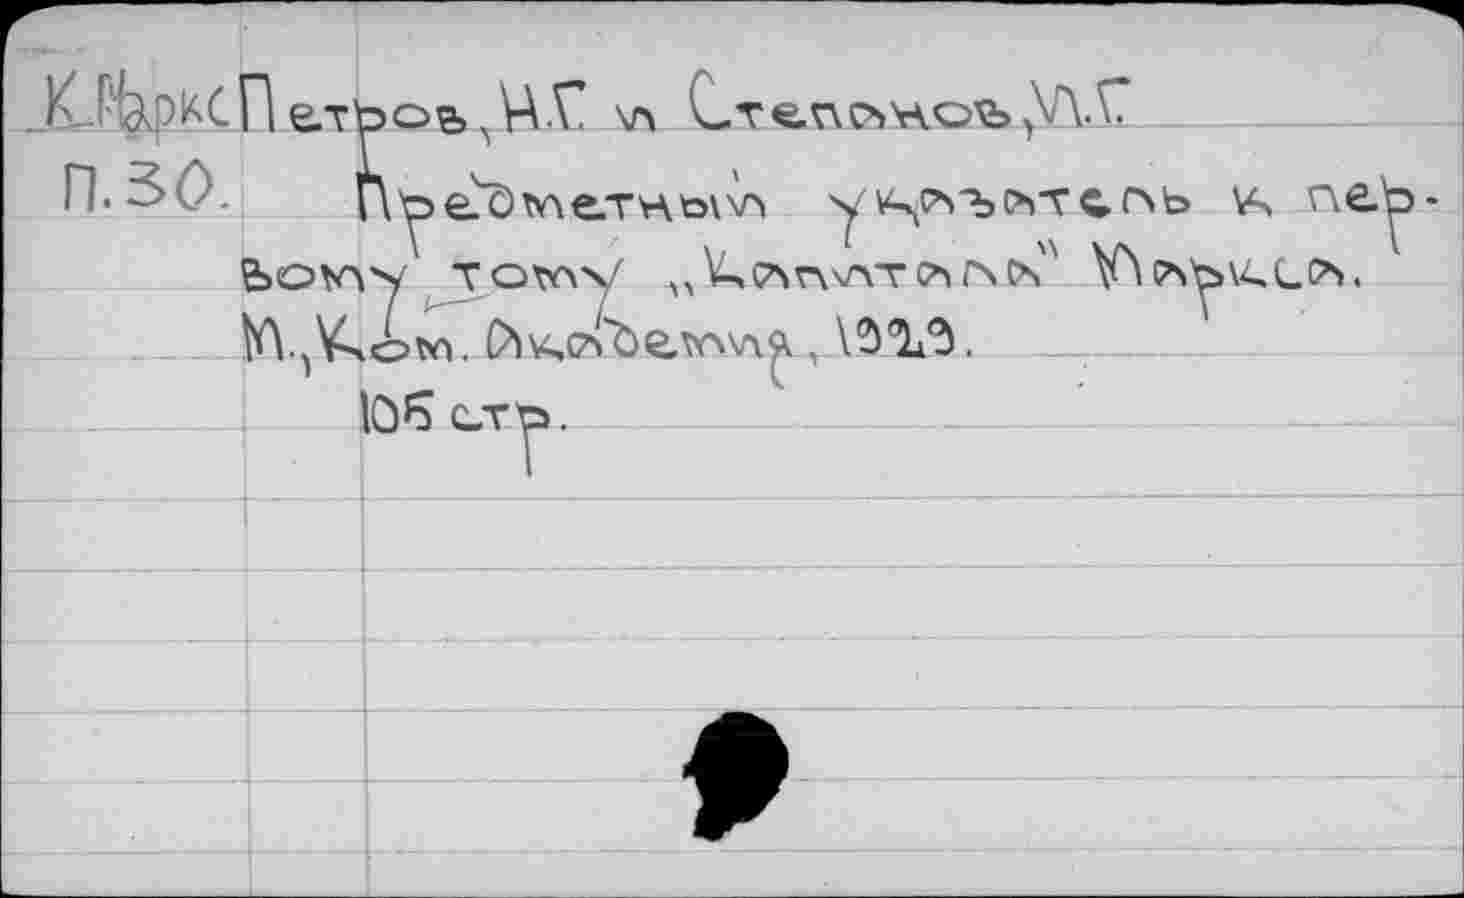 К.Маркс Петров, Н.Г. и Степанов, И.Г.
П.30. Предметный указатель к пер-
вому тому „Капитала" Маркса.
М., Ком. Академия, 1929.
105 стр.